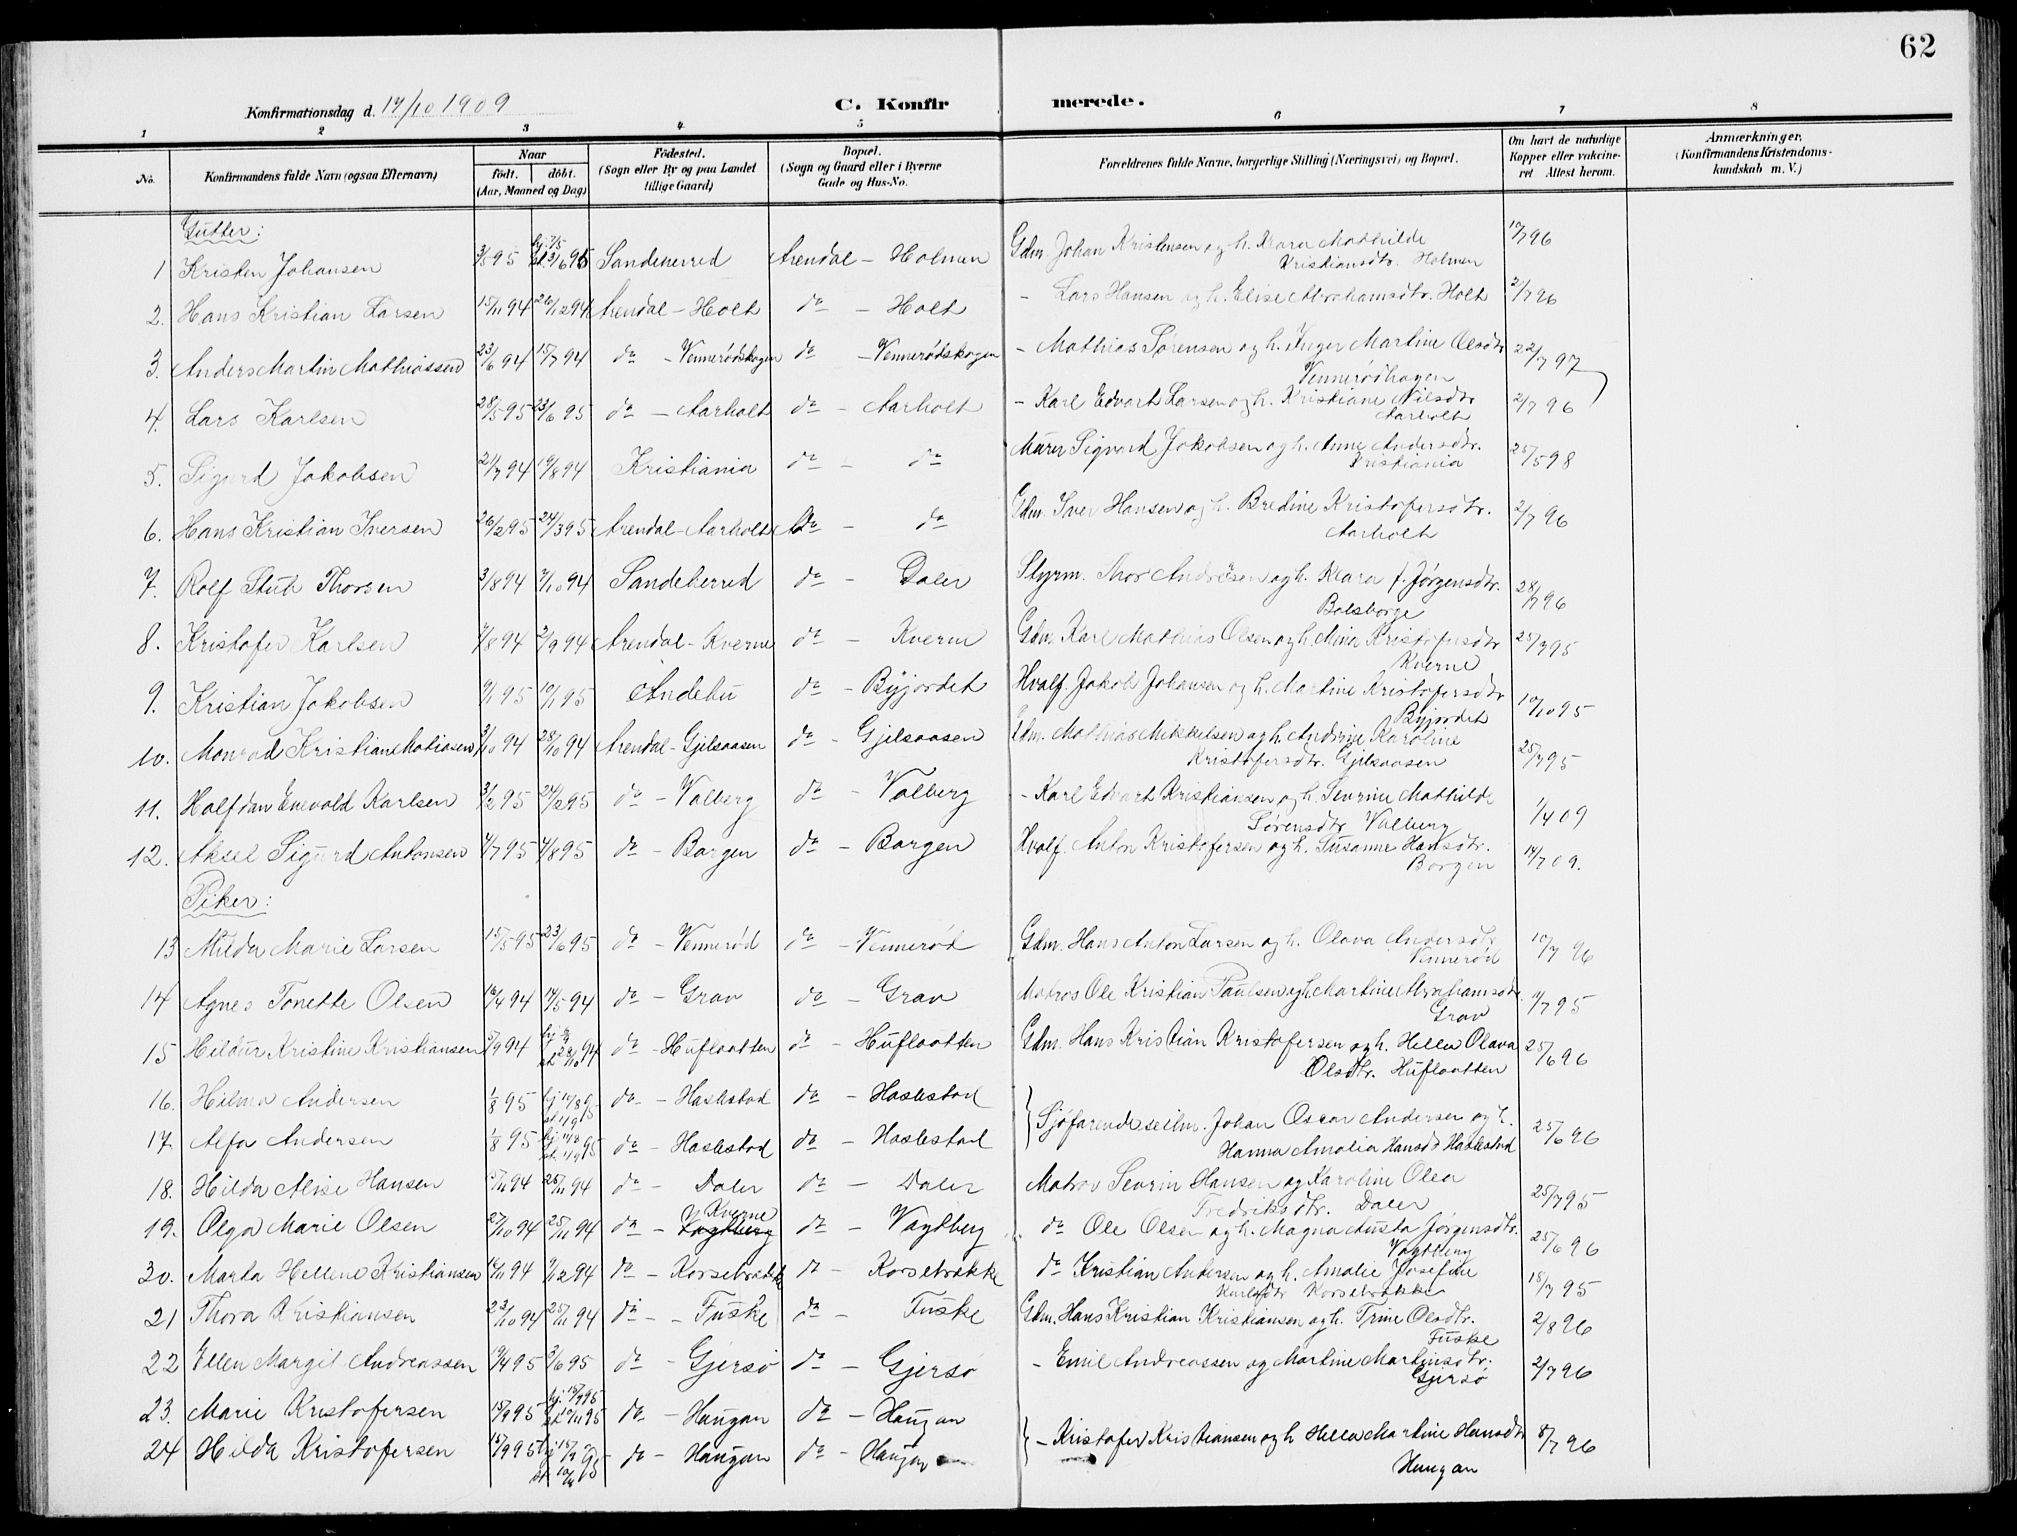 62
Konfirmationsdag d. 17/10 1909
C. Konfir merede.
1 2 3 4 5 6 7 8
No.
Konfirmandens fulde Navn (ogsaa Efternavn)
Naar
født. døbt.
(Aar, Maaned og Dag)
Fødested.
(Sogn eller By og paa Landet
tillige Gaard)
Bopæl.
(Sogn og Gaard eller i Byerne
Gade og Hus-No.
Forældrenes fulde Navne, borgerlige Stilling (Næringsvei) og Bopæl.
Om havt de naturlige
Kopper eller vakcine-
ret Attest herom.
Anmærkninger.
(Konfirmandens Kristendoms-
kundskab m. V.)
Gutter:
1 Kristen Johansen 3/5 95 hj. 7/5 st. 23/6 95 Sandeherred Arendal - Holmen Gdm. Johan Kristensen og h. Klara Mathilde 10/7 96
Kristiansdtr. Holmen
2. Hans Kristian Larsen 15/11 94 26/12 94 Arendal - Holt do - Holt - Lars Hansen og h. Elise Abrahamsdtr. Holt 2/7 96
3. Anders Martin Mathiassen 23/6 94 15/7 94 do - Vennerødskogen do - Vennerødskogen - Mathias Sørensen og h. Inger Martine Olsdtr 22/7 97
Vennerødhagen
4. Lars Karlsen 28/5 95 23/6 95 do - Aarholt do - Aarholt - Karl Edvart Larsen og h. Kristiane Nilsdtr 2/7 96
Aarholt
5. Sigurd Jakobsen 21/7 94 19/8 94 Kristiania do - do Murer Sigvard Jakobsen og h. Anne Andersdtr. 25/5 98
Kristiania
6. Hans Kristian Iversen 26/2 95 24/3 95 Arendal - Aarholt do - do Gdm. Iver Hansen og h. Bredine Kristofersdtr. 2/7 96
Aarholt
7. Rolf Stub Thorsen 3/8 94 7/10 94 Sandeherred do - Daler Styrm. Thor Andresen og h. Klara f. Jørgensdtr. 28/7 96
Bolsborge
8. Kristofer Karlsen 7/8 94 2/9 94 Arendal - Kverne do - Kverne Gdm. Karl Mathias Olsen og h. Mine Kristofersdtr 25/7 95
Kverne
9. Kristian Jakobsen 9/1 95 10/1 95 Andebu do - Byjordet Hvalf. Jakob Johansen og h. Martine Kristofersdtr 10/10 95
Byjordet
10. Monrad Kristiane Matiasen 3/10 94 28/10 94 Arendal - Gjelsaasen do - Gjelsaasen Gdm. Mathias Mikkelsen og h. Andrine Karoline 25/7 95
Kristofersdtr. Gjelsaasen
11. Halfdan Enevold Karlsen 3/2 95 24/2 95 do - Valberg do - Valberg - Karl Edvart Kristiansen og h. Sevrine Mathilde 1/4 09
Sørensdtr Valberg
12. Aksel Sigurd Antonsen 4/7 95 4/8 95 do - Borgen do - Borgen Hvalf. Anton Kristofersen og h. Susanne Hansdtr. 14/7 09.
Borgen
Piker:
13 Milda Marie Larsen 15/5 95 23/6 95 do - Vennerød do - Vennerød Gdm. Hans Anton Larsen og h. Olava Andersdtr 10/7 96
Vennerød
14 Agnes Tonette Olsen 16/4 94 14/5 94 do - Grav do - Grav Matros Ole Kristian Paulsen og h. Martine Abrahamsdtr 11/7 95
Grav
15 Hildur Kristine Kristiansen 5/9 94 28/10 94 do - Huflaatten do - Huflaatten Gdm. Hans Kristian Kristofersen og h. Hella Olava 25/6 96
Olsdtr. Huflaatten
16. Hilma Andersen 1/8 95 do - Haslestad do - Haslestad
Sjøfarende Johan Oscar Andersen og h. 25/6 96
17. Alfa Andersen 1/8 95 do - Haslestad do - Haslestad
Hanna Amalia Hansdtr Haslestad
18. Hilda Alise Hansen 94 25/11 94 do - Daler do - Daler Matros Sevrin Hansen og Karoline Olea 25/7 95
Fredriksdtr. Daler
19. Olga Marie Olsen 27/10 94 25/11 94 do - Kverne Vagtberg do - Vagtberg do Ole Olsen og h. Magna Austa Jørgensdtr. 25/6 96
Vagtberg
20. Marta Hellene Kristiansen 16/11 94 9/12 94 do - Korsebrække do - Korsebrække do Kristian Andersen og h. Amalie Josefine 18/7 95
Karlsdtr Korsebrække
21 Thora Kristiansen 22/10 94 25/11 94 do - Fuske do - Fuske Gdm. Hans Kristian Kristiansen og h. Trine Olsdtr. 2/8 96
Fuske
22 Ellen Margit Andreassen 19/4 95 3/6 95 do - Gjersø do - Gjersø - Emil Andreassen og Martine Martinsdtr. 2/7 96
Gjersø
23. Marie Kristofersen 15/9 95 hj. 15/9 95 st. 10/11 95 do - Haugan do - Haugan
- Kristofer Kristiansen og h Hella Martine Hansdtr 8/7 96
24 Hilda Kristofersen 15/9 95 hj 15/9 st. 10/11 95 do - Haugan do - Haugan
Haugan